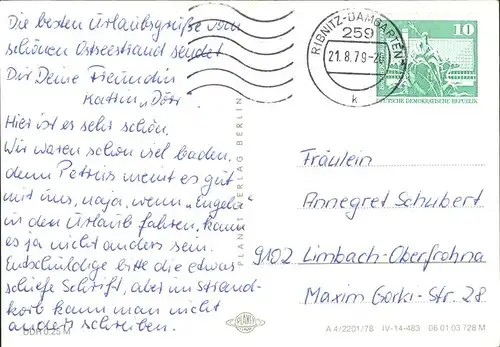 Die besten Urlaubsgrüße vom
schönen Ostseestrand sendet
Dir Deine Freundin
Katrin
Hier ist es sehr schön.
Wir waren schon viel baden,
denn Petrus meint es gut
mit uns, naja, wenn „Engel“
in den Urlaub fahren, kann
es ja nicht anders sein.
Entschuldige bitte die etwas
schiefe Schrift, aber im Strand-
korb kann man nicht
anders schreiben.
DDR 0,25 M
PLANET VERLAG BERLIN
PLANET
RIBNITZ-DAMGARTEN
259
21.8.79-20
k
10
DEUTSCHE DEMOKRATISCHE REPUBLIK
Fräulein
Annegret Schubert
9102 Limbach-Oberfrohna
Maxim Gorki-Str. 28
A 4/2201/78 IV-14-483 06 01 03 728 M